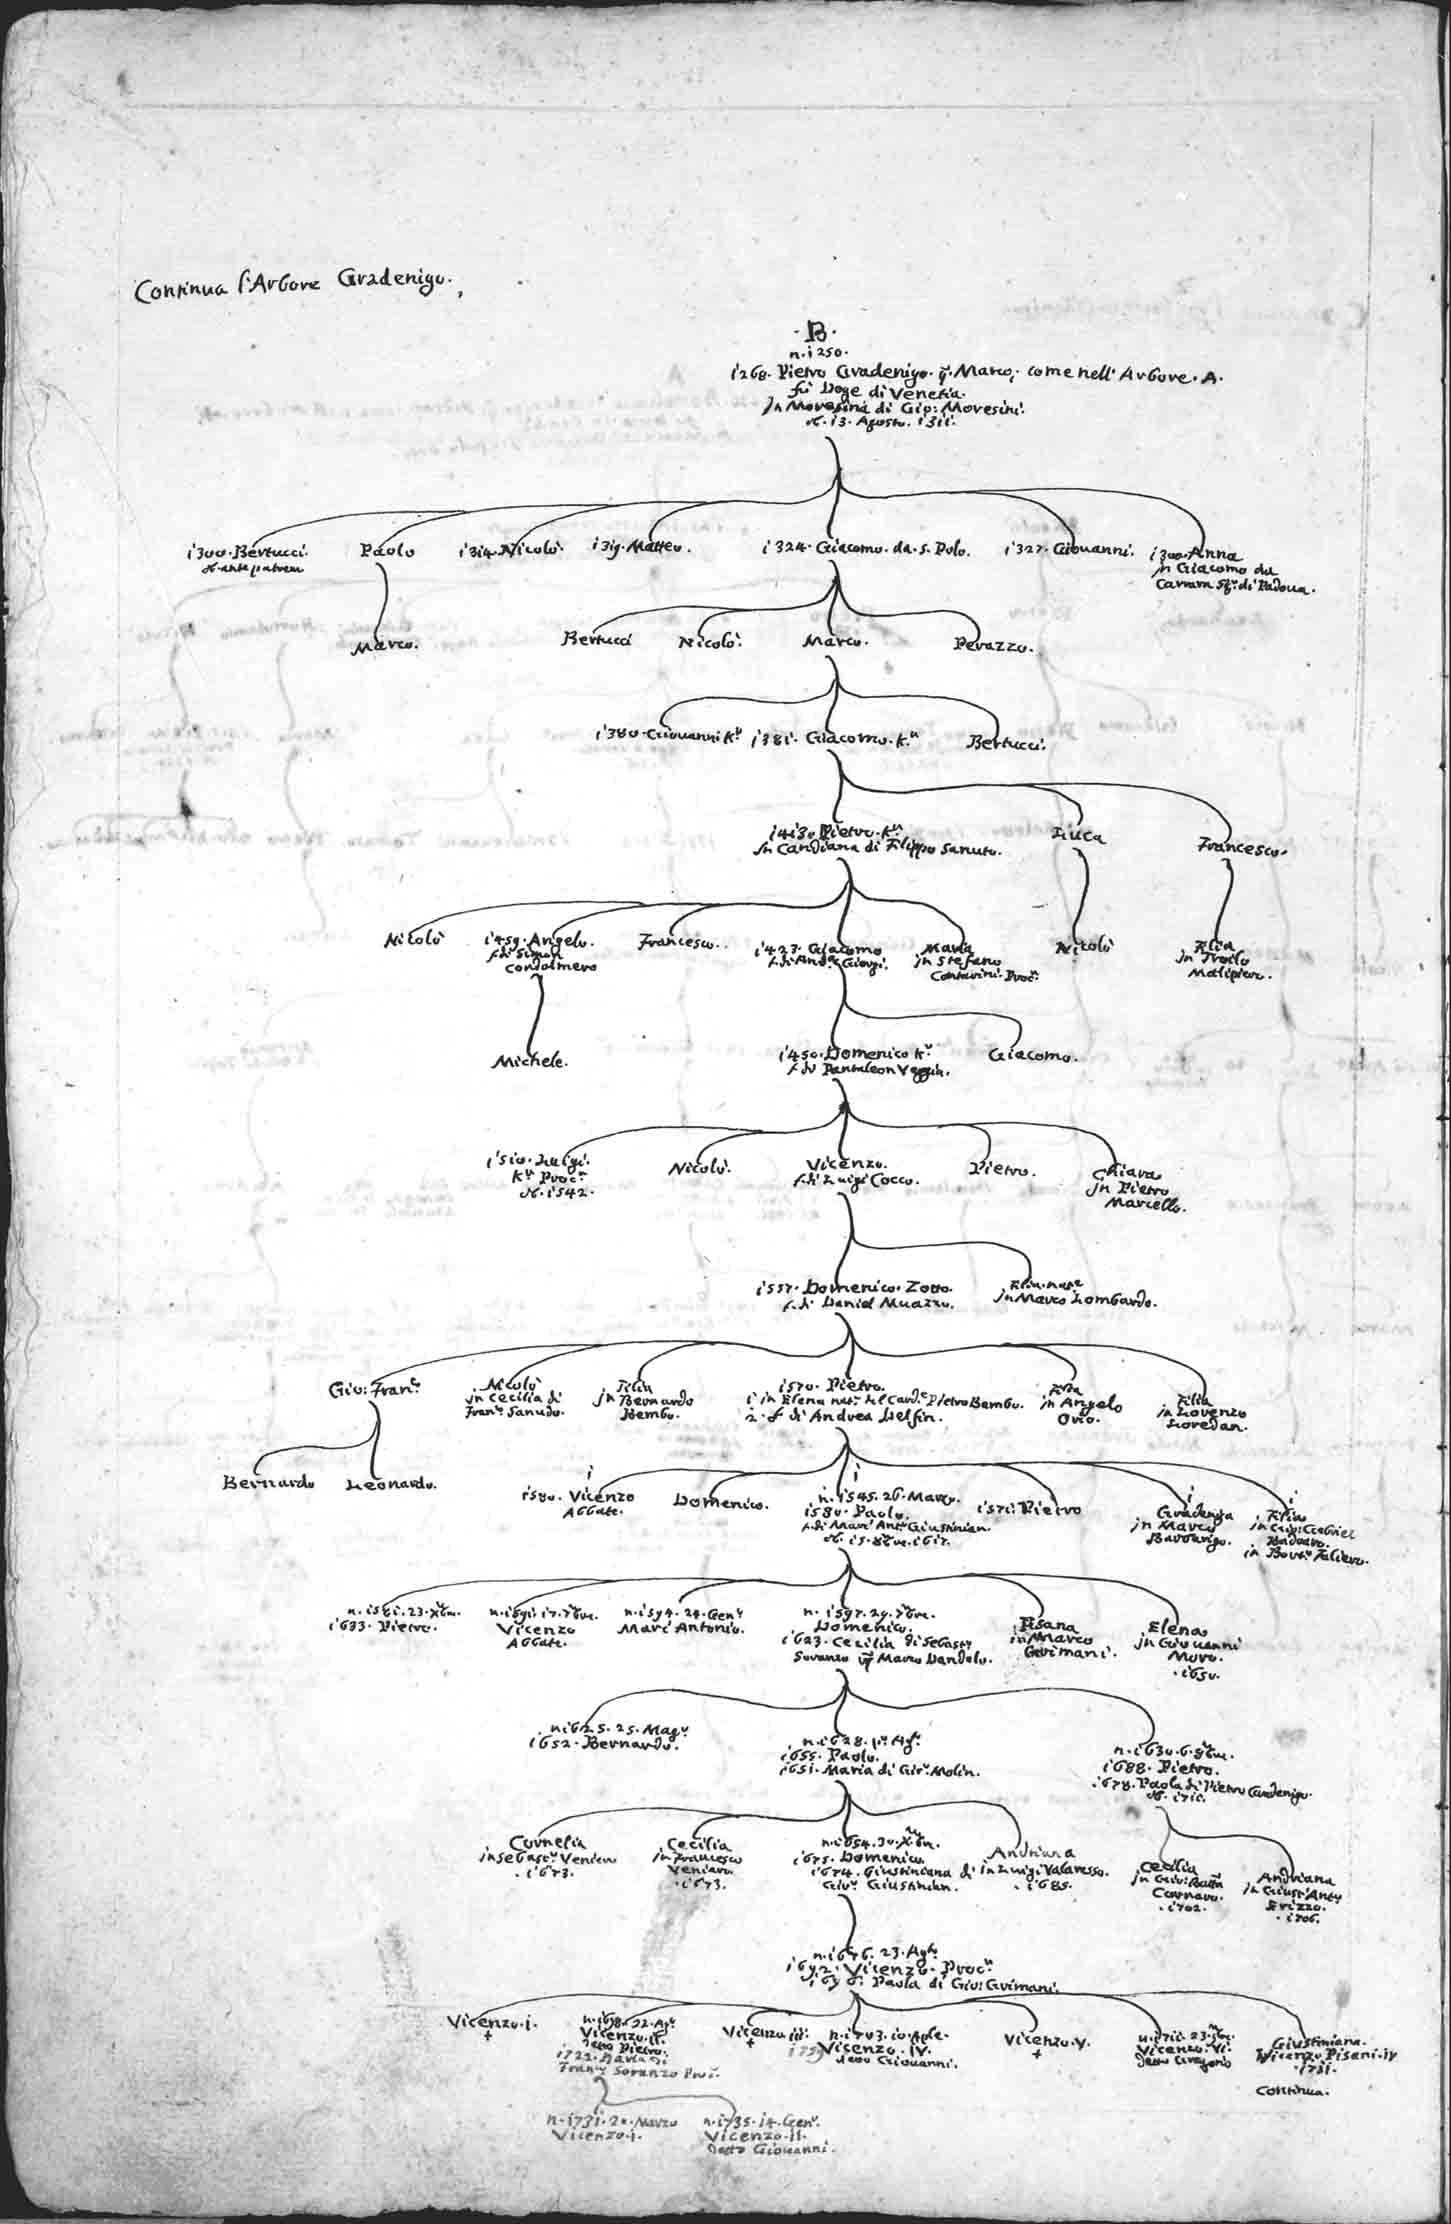 Continua l'Arbore Gradenigo.
.B.
n. 1250.
1268. Pietro Gradenigo. q. Marco, come nell' Arbore. A.
fu Doge di Venetia.
in Moresina di Gio: Moresini.
ob. 13. Agosto. 1311.
1300. Bertucci.
ob. ante patrem
Paolo
1314. Nicolò.
1319. Matteo.
1324. Giacomo. da. S. Polo.
1327. Giovanni.
1300. Anna
in Giacomo da
Carrara Sr. di Padoua.
Marco.
Bertucci
Nicolò.
Marco.
Perazzo.
1380. Giovanni Kr.
1381. Giacomo. Kr.
Bertucci.
1413. Pietro. Kr.
in Candiana di Filippo Sanuto.
Luca
Francesco.
Nicolò
1459. Angelo.
f. di Simon
Condolmero
Francesco.
1423. Giacomo
f. di Andª Giorgi.
Maria
in Stefano
Contarini. Procr.
Nicolò
Filia
in Troilo
Malipiero.
Michele.
1450. Domenico Kr.
f. di Pantaleon Veggia.
Giacomo.
1510. Luigi.
Kr. Procr.
ob. 1542.
Nicolò.
Vicenzo.
f. di Luigi Cocco.
Pietro.
Chiara
in Pietro
Marcello.
1557. Domenico. Zotto.
f. di Daniel Muazzo.
Filia nate
in Marco Lombardo.
Gio: Franco.
Nicolò
in Cecilia di
Franco. Sanudo.
Filia
in Bernardo
Bembo.
1570. Pietro.
1 in Elena natl. del Card.e Pietro Bembo.
2. f. di Andrea Delfin.
Filia
in Angelo
Orio.
Filia
in Lorenzo
Loredan.
Bernardo
Leonardo.
1
1580. Vicenzo
Abbate.
Domenico.
1
n. 1545. 26. Marzo.
1580. Paolo.
f. di Marc' Ant.o Giustinian.
ob. 15. 8bre. 1617.
1571. Pietro
1
Gradeniga
in Marco
Barbarigo.
1
Filia
in Gio: Gabriel
Badoaro.
in Bort.o Faliero.
n. 1581. 23. Xbre.
1633. Pietro.
n. 1591. 17. 7bre.
Vicenzo
Abbate.
n. 1594. 24. Genr.
Marc' Antonio.
n. 1597. 29. 7bre.
Domenico.
1623. Cecilia di Sebast.o
Soranzo q. Marco Dandolo.
Pisana
in Marco
Grimani.
Elena
in Giouanni
Moro.
. 1650.
n. 1625. 25. Mago.
1652. Bernardo.
n. 1628. p.o Ago.
1655. Paolo.
1651. Maria di Gir.o Molin.
n. 1630. 6. 8bre.
1688. Pietro.
1678. Paola di Pietro Gradenigo.
ob. 1710.
Cornelia
in Sebast.o Veniero
. 1673.
Cecilia
in Francesco
Veniero.
. 1673.
n. 1654. 30. Xbre.
1675. Domenico.
1674. Giustiniana di
Gio.o Giustinian.
Andriana
in Luigi Valaresso.
. 1685.
Cecilia
in Gio: Batta
Cornaro.
. 1702.
Andriana
in Giust.o Ant.o
Erizzo.
. 1706.
n. 1676. 23. Agto.
1692. Vicenzo. Procr.
1696. Paola di Gio: Grimani.
Vicenzo. I.
+
n. 1698. 22. Ago.
Vicenzo. II.
detto Pietro.
1722. Maria di
Franco. Soranzo Procr.
Vicenzo III.
+
n. 1703. 10. Aple.
Vicenzo. IV.
detto Giouanni.
Vicenzo. V.
+
n. 1711. 23.
Vicenzo. VI.
detto Gregorio
Giustiniana.
Vicenzo Pisani. IV
. 1731.
Continua.
n. 1731. 20. Marzo
Vicenzo. I.
n. 1735. 14. Genr.
Vicenzo. II.
detto Giouanni.